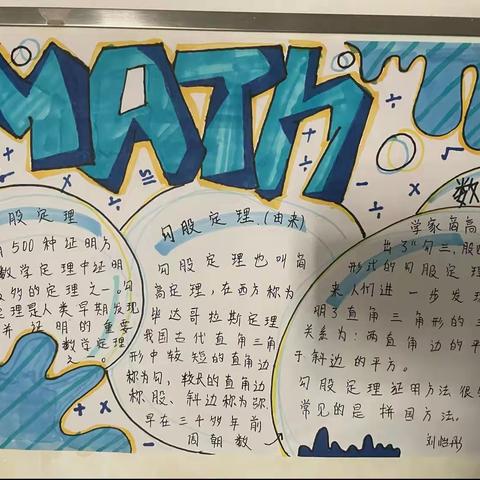 MATH
股定理
500种证明方
数学定理中证明
多的定理之一。勾
定理是人类早期发现
并证明的重要
数学定理
之一。
勾股定理.(由来)
勾股定理也叫商
高定理，在西方称为
毕达哥拉斯定理
我国古代直角三角
形中较短的直角边
称为勾，较长的直角边
称股、斜边称为弦.
早在三千多年前
周朝数
数
学家商高
出了"勾三,股
形式的勾股定理
来人们进一步发现
明了直角三角形的三
关系为：两直角边的平
于斜边的平方。
勾股定理证明方法很
常见的是拼图方法。